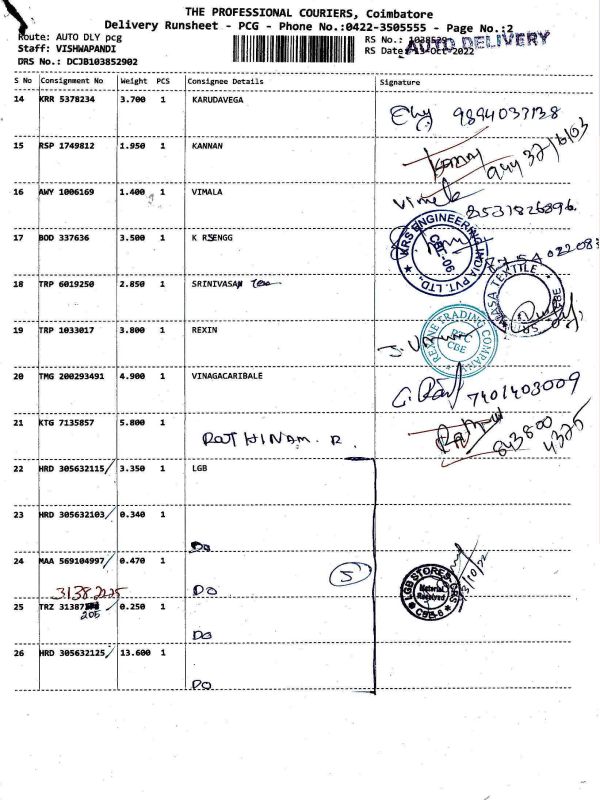 THE PROFESSIONAL COURIERS, Coimbatore
Delivery Runsheet - PCG - Phone No.:0422-3505555 - Page No.:2
Route: AUTO DLY pcg
RS No.:
AUTO DELIVERY
Staff: VISHWAPANDI
RS Date: 13-Oct-2022
DRS No.: DCJB103852902
S No Consignment No Weight PCS Consignee Details Signature
14 KRR 5378234 3.700 1 KARUDAVEGA
9894037138
15 RSP 1749812 1.950 1 KANNAN
16 AWY 1006169 1.400 1 VIMALA
8531826896
17 BOD 337636 3.500 1 K RSENGG
KRS ENGINEERING INDIA PVT. LTD.
CBE-06
18 TRP 6019250 2.850 1 SRINIVASAN Tex
TEXTILE
19 TRP 1033017 3.800 1 REXIN
REXINE TRADING COMPANY
RTC
CBE
20 TMG 200293491 4.900 1 VINAGACARIBALE
7401403009
21 KTG 7135857 5.800 1 RATHINAM. R.
843800
4325
22 HRD 305632115 3.350 1 LGB
23 HRD 305632103 0.340 1
Do
24 MAA 569104997 0.470 1
5
Do
LGB STORES-GRS
Material
Received
CBE-6
25 TRZ 31387 0.250 1
205
Do
26 HRD 305632125 13.600 1
Do